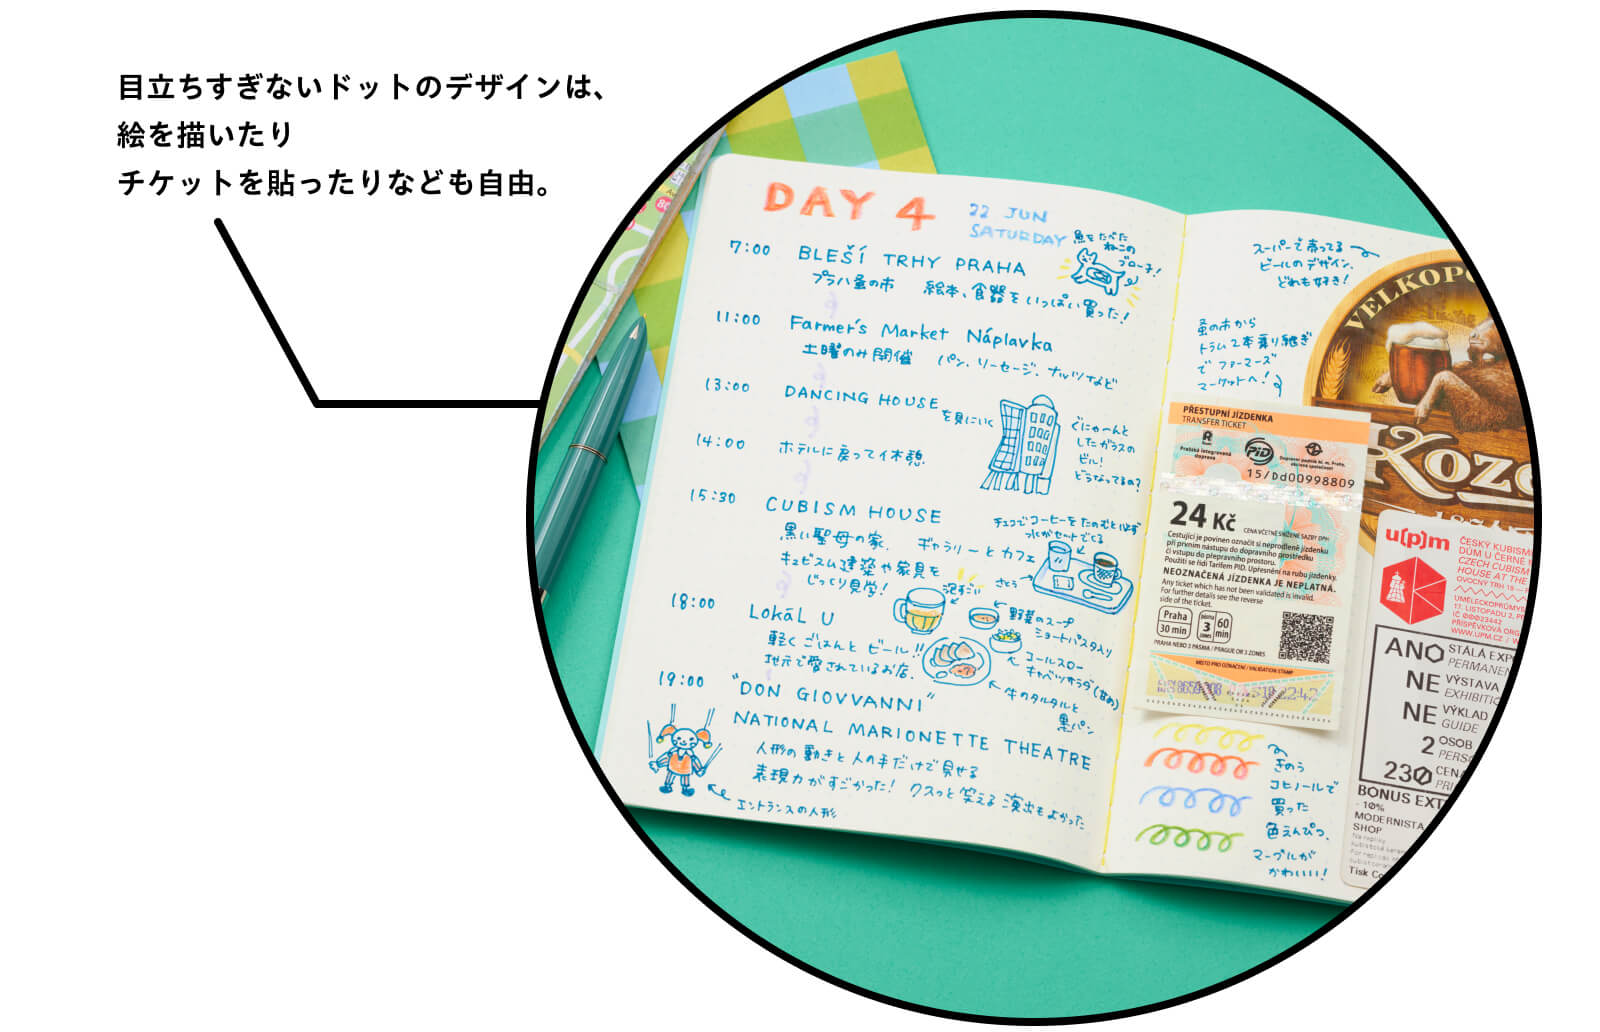 目立ちすぎないドットのデザインは、
絵を描いたり
チケットを貼ったりなども自由。
DAY 4
22 JUN
SATURDAY
魚をたべた
ねこの
ブローチ!
7:00 BLEŠÍ TRHY PRAHA
プラハ蚤の市 絵本、食器をいっぱい買った!
11:00 Farmer's Market Náplavka
土曜のみ開催 パン、ソーセージ、ナッツなど
13:00 DANCING HOUSE
を見にいく
ぐにゃ〜んと
したガラスの
ビル!
どうなってるの?
14:00 ホテルに戻って休憩
15:30 CUBISM HOUSE
黒い聖母の家、ギャラリーとカフェ
キュビスム建築や家具を
じっくり見学!
チェコでコーヒーをたのむと必ず
水がセットでくる
さとう
18:00 LOKáL U
軽くごはんとビール!!
地元で愛されているお店.
泡すごい
野菜のスープ
ショートパスタ入り
コールスロー
キャベツサラダ(甘め)
牛のタルタルと
黒パン
19:00 "DON GIOVVANNI"
NATIONAL MARIONETTE THEATRE
人形の動きと人の手だけで見せる
表現力がすごかった! クスっと笑える演出もよかった
エントランスの人形
スーパーで売ってる
ビールのデザイン、
どれも好き!
蚤の市から
トラム2本乗り継ぎ
でファーマーズ
マーケットへ!
VELKOPO
Koze
PŘESTUPNÍ JÍZDENKA
TRANSFER TICKET
Pražská integrovaná
doprava
PID
Dopravní podnik hl. m. Prahy,
akciová společnost
15/Dd00998809
24 Kč
CENA VČETNĚ SNÍŽENÉ SAZBY DPH
Cestující je povinen označit si neprodleně jízdenku
při prvním nástupu do dopravního prostředku
či vstupu do přepravního prostoru.
Použití se řídí Tarifem PID. Upřesnění na rubu jízdenky.
NEOZNAČENÁ JÍZDENKA JE NEPLATNÁ.
Any ticket which has not been validated is invalid.
For further details see the reverse
side of the ticket.
Praha
30 min
3
60
min
PRAHA NEBO 3 PÁSMA / PRAGUE OR 3 ZONES
MÍSTO PRO OZNAČENÍ / VALIDATION STAMP
u(p)m
ČESKÝ KUBISM
DŮM U ČERNÉ M
CZECH CUBISM
HOUSE AT THE
OVOCNÝ TRH 19
UMĚLECKOPRŮMYS
17. LISTOPADU 2, P
IČ 00023442
PŘÍSPĚVKOVÁ ORG
WWW.UPM.CZ
ANO STÁLÁ EXP
PERMANEN
NE VÝSTAVA
EXHIBITIO
NE VÝKLAD
GUIDE
2 OSOB
PERS
230 CENA
PRI
BONUS EXT
- 10%
MODERNISTA
SHOP
Tisk Co
きのう
コヒノールで
買った
色えんぴつ、
マーブルが
かわいい!